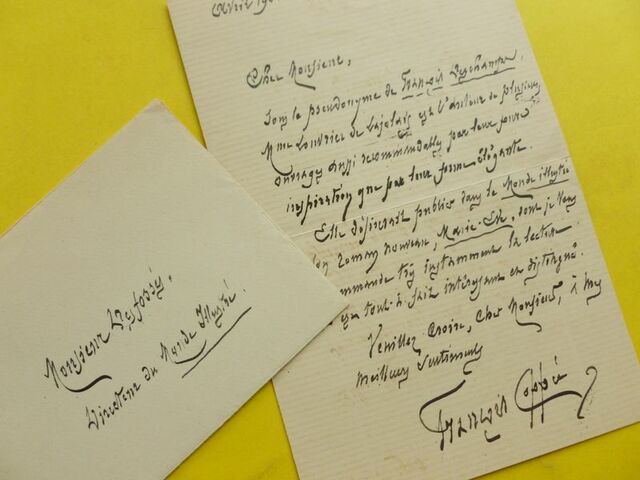 Avril 19
Cher Monsieur,
Sous le pseudonyme de François Deschamps,
Mme Louvrier de Lajolais est l'auteur de plusieurs
ouvrages aussi recommandables par leur pure
inspiration que par leur forme élégante.
Elle désirerait publier dans le Monde illustré
son roman nouveau, Marie-, dont je vous
recommande très instamment la lecture
et qui est tout à fait intéressant et distingué.
Veuillez croire, cher Monsieur, à mes
meilleurs sentiments
François Coppée
Monsieur Desfossés,
Directeur du Monde Illustré.